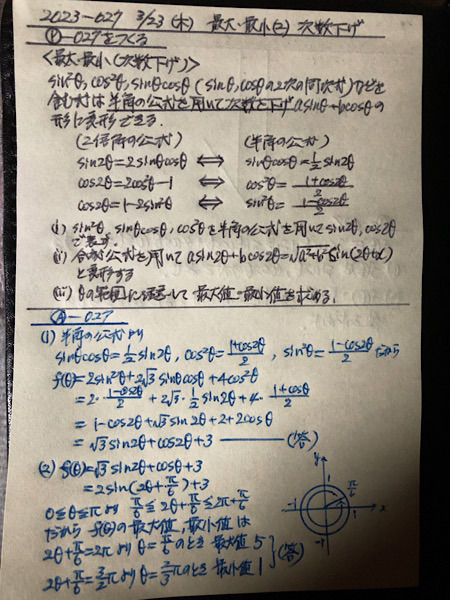 2023-027 3/23(木) 最大・最小(2) 次数下げ
Ⓟ-027をつくる
<最大・最小(次数下げ)>
sin²θ, cos²θ, sinθcosθ (sinθ, cosθの2次の同次式)などを
含む式は半角の公式を用いて次数を下げ asinθ+bcosθの
形に変形できる.
(2倍角の公式) (半角の公式)
sin2θ=2sinθcosθ ⇔ sinθcosθ=1/2 sin2θ
cos2θ=2cos²θ-1 ⇔ cos²θ=(1+cos2θ)/2
cos2θ=1-2sin²θ ⇔ sin²θ=(1-cos2θ)/2
(i) sin²θ, sinθcosθ, cos²θを半角の公式を用いてsin2θ, cos2θ
で表す.
(ii) 合成公式を用いて asin2θ+bcos2θ=√(a²+b²)sin(2θ+α)
と変形する
(iii) θの範囲に注意して最大値・最小値を求める.
Ⓐ-027
(1) 半角の公式より
sinθcosθ=1/2 sin2θ, cos²θ=(1+cos2θ)/2, sin²θ=(1-cos2θ)/2 だから
f(θ)=2sin²θ+2√3 sinθcosθ+4cos²θ
=2・(1-cos2θ)/2 + 2√3・1/2 sin2θ+4・(1+cosθ)/2
=1-cos2θ+√3 sin2θ+2+2cosθ
=√3 sin2θ+cos2θ+3 ――― (答)
(2) f(θ)=√3 sin2θ+cosθ+3
=2sin(2θ+π/6)+3
0≦θ≦πより π/6≦2θ+π/6≦2π+π/6
だから f(θ)の最大値, 最小値は
2θ+π/6=2πより θ=π/6のとき 最大値 5
2θ+π/6=3/2πより θ=2/3πのとき 最小値 1
(答)
y
1
π/6
-1
1
x
-1